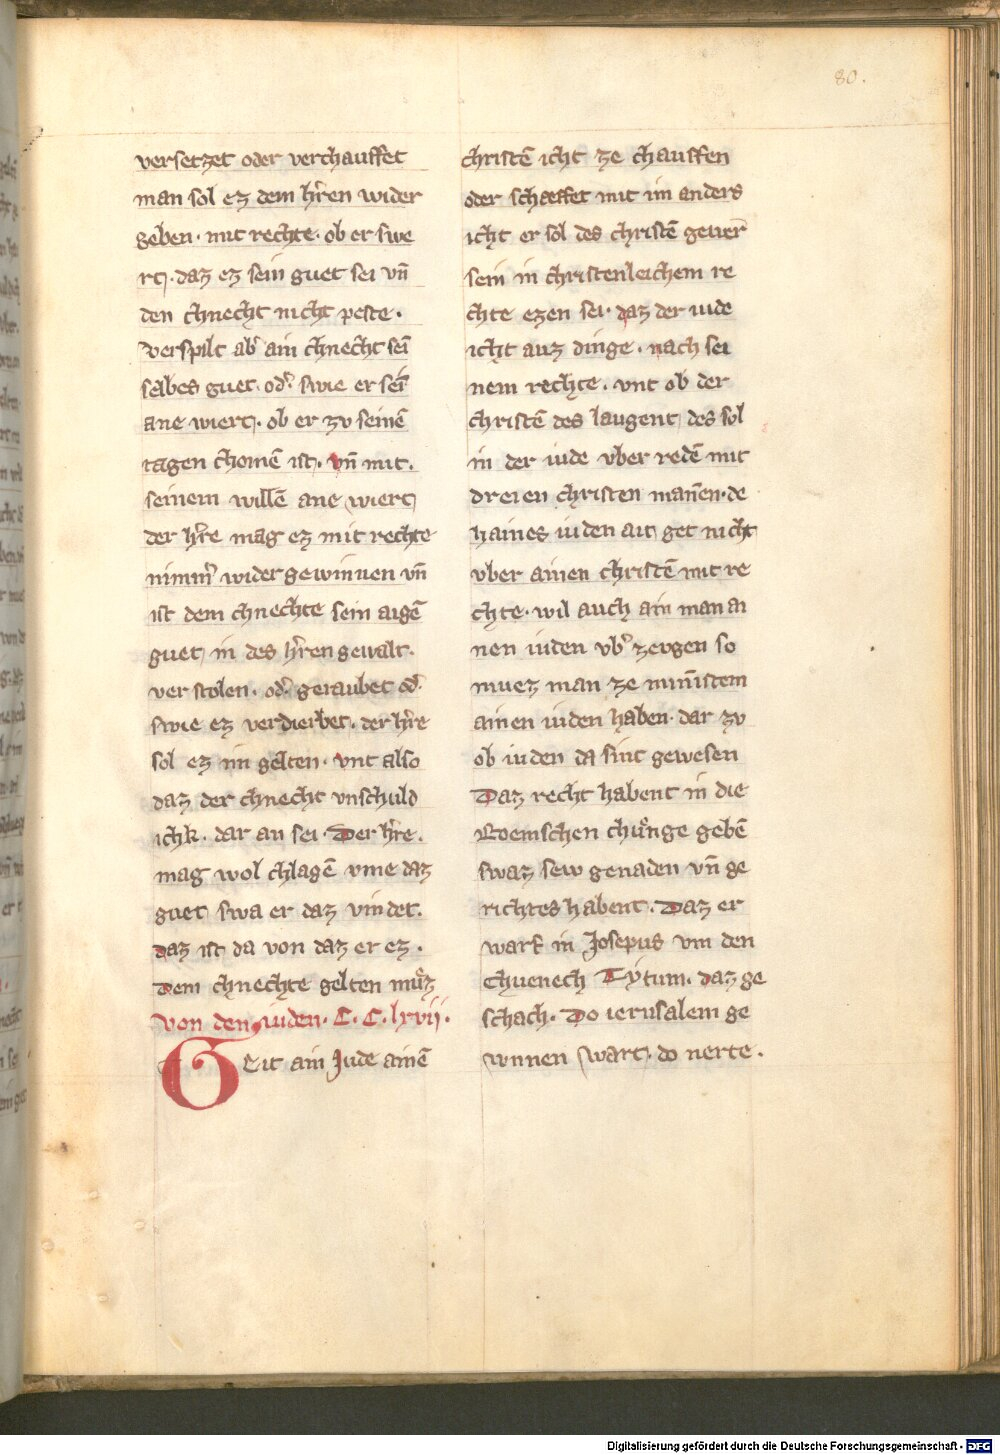 80.
versetzet oder verchauffet
man sol ez dem hr̄en wider
geben · mit rechte · ob er swe
rt · daz ez sein guet sei vn̄
den chnecht nicht peste ·
verspilt ab̾ ain chnecht sei̅
selbes guet · od̾ swie er sei̅
ane wiert · ob er zv seine̅
tagen chome̅ ist · vn̄ mit ·
seinem wille̅ ane wiert
der hr̄e mag ez mit rechte
nimm̾ wider gewinnen vn̄
ist dem chnechte sein aige̅
guet in des hr̄en gewalt ·
verstolen · od̾ geraubet od̾
swie ez verdierbet · der hr̄e
sol ez im gelten · vnt also
daz der chnecht vnschuld
ichk · dar an sei · Der hr̄e ·
mag wol chlage̅ vme daz
guet swa er daz vindet ·
daz ist da von daz er ez ·
Dem chnechte gelten muͦz
Von den iuiden · C · C · lxvij ·
GEit ain Jude aine̅
christe̅ icht ze chauffen
oder schaeffet mit im anders
icht er sol des christe̅ gewer̅
sein in christenleichem re
chte ezen sei · daz der iude
icht auz dinge · nach sei
nem rechte · vnt ob der
christe̅ des laugent des sol
in der iude vber rede̅ mit
dreien christen man̅en · de
haines iuden ait get nicht
vber ainen christe̅ mit re
chte · wil auch ain man ai
nen iuden vb̾ zevgen so
muez man ze min̅istem
ainen iuden haben · dar zv
ob iuden da sint gewesen
Daz recht habent in die
Roemschen chuͦnge gebe̅
swaz sew genaden vn̄ ge
richtes habent · Daz er
warf in Josepus vm den
Chuenech Tytum · daz ge
schach · Do ierusalem ge
wnnen wart · do nerte ·
Digitalisierung gefördert durch die Deutsche Forschungsgemeinschaft - DFG